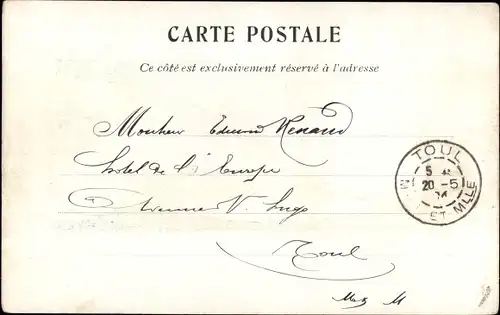 CARTE POSTALE
Ce côté est exclusivement réservé à l'adresse
Monsieur Edmond Renaud
hotel de l'Europe
Avenue V. Hugo
Toul
TOUL
5
20 -5
ET MLLE